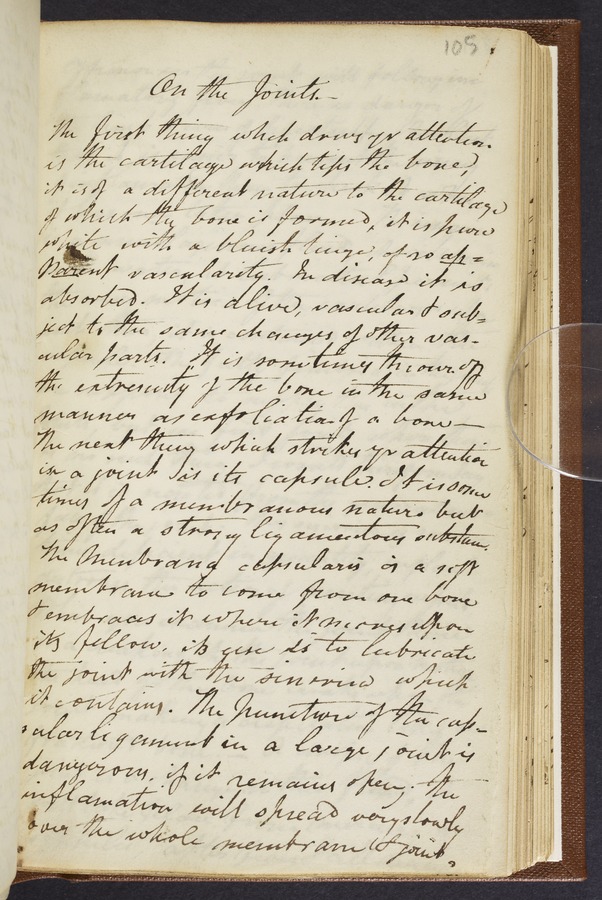 105
On the Joints.-
The first thing which draws yr attention
is the cartilage which tips the bone,
it is of a different nature to the cartilage
of which the bone is formed, it is pure
white with a bluish tinge, of no ap=
parent vascularity. In disease it is
absorbed. It is alive, vascular & sub=
ject to the same changes of other vas-
cular parts. It is sometimes thrown off
the extremity of the bone in the same
manner as exfoliation of a bone—
The next thing which strikes yr attention
in a joint is its capsule. It is some
times of a membranous nature but
as often a strong ligamentous substan.
The Membrana capsularis is a soft
membrane to come from one bone
& embraces it where it moves upon
its fellow. its use is to lubricate
the joint with the sinovia which
it contains. The puncture of the cap-
sular ligament in a large joint is
dangerous, if it remains open; the
inflamation will spread very slowly
over the whole membrane & joint,